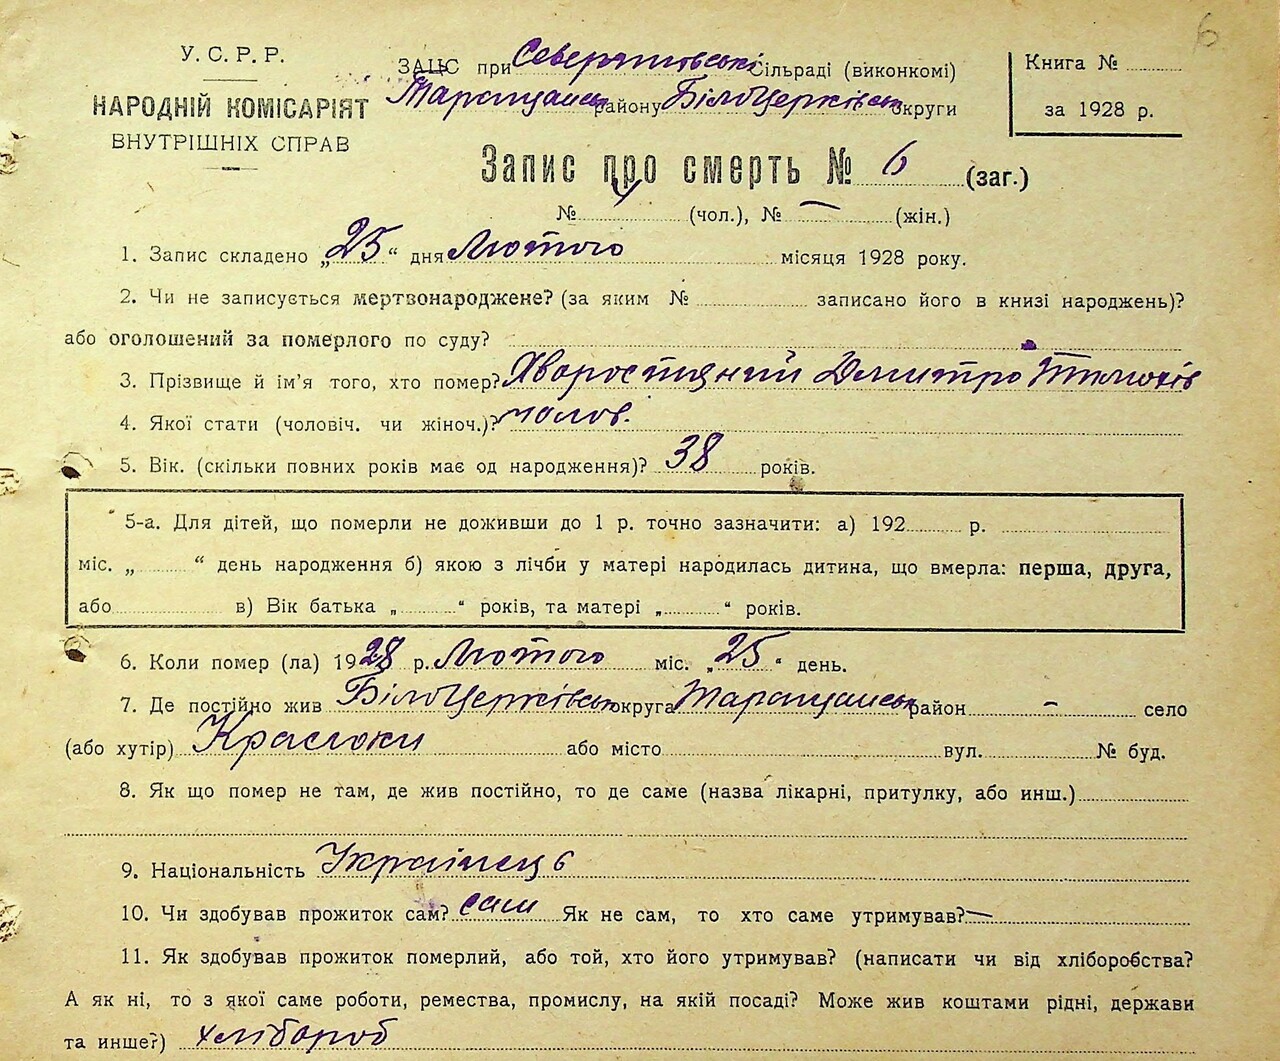 6
У. С. Р. Р.
НАРОДНІЙ КОМІСАРІЯТ
ВНУТРІШНІХ СПРАВ
ЗАЦС при Севериновські Сільраді (виконкомі)
Таращанськ району Білоцерківськ округи
Книга №
за 1928 р.
Запис про смерть № 6 (заг.)
№ 4 (чол.), № — (жін.)
1. Запис складено „25“ дня Лютого місяця 1928 року.
2. Чи не записується мертвонароджене? (за яким № записано його в книзі народжень)?
або оголошений за померлого по суду?
3. Прізвище й ім'я того, хто помер? Хворостяний Дмитро Тимохів
4. Якої стати (чоловіч. чи жіноч.)? чолов.
5. Вік. (скільки повних років має од народження)? 38 років.
5-а. Для дітей, що померли не доживши до 1 р. точно зазначити: а) 192 р.
міс. „ “ день народження б) якою з лічби у матері народилась дитина, що вмерла: перша, друга,
або в) Вік батька „ “ років, та матері „ “ років.
6. Коли помер (ла) 1928 р. Лютого міс. „25“ день.
7. Де постійно жив Білоцерківськ округа Таращанськ район - село
(або хутір) або місто вул. № буд.
8. Як що помер не там, де жив постійно, то де саме (назва лікарні, притулку, або инш.)
9. Національність Українець
10. Чи здобував прожиток сам? сам Як не сам, то хто саме утримував? —
11. Як здобував прожиток померлий, або той, хто його утримував? (написати чи від хліборобства?
А як ні, то з якої саме роботи, ремества, промислу, на якій посаді? Може жив коштами рідні, держави
та инше?) хлібороб